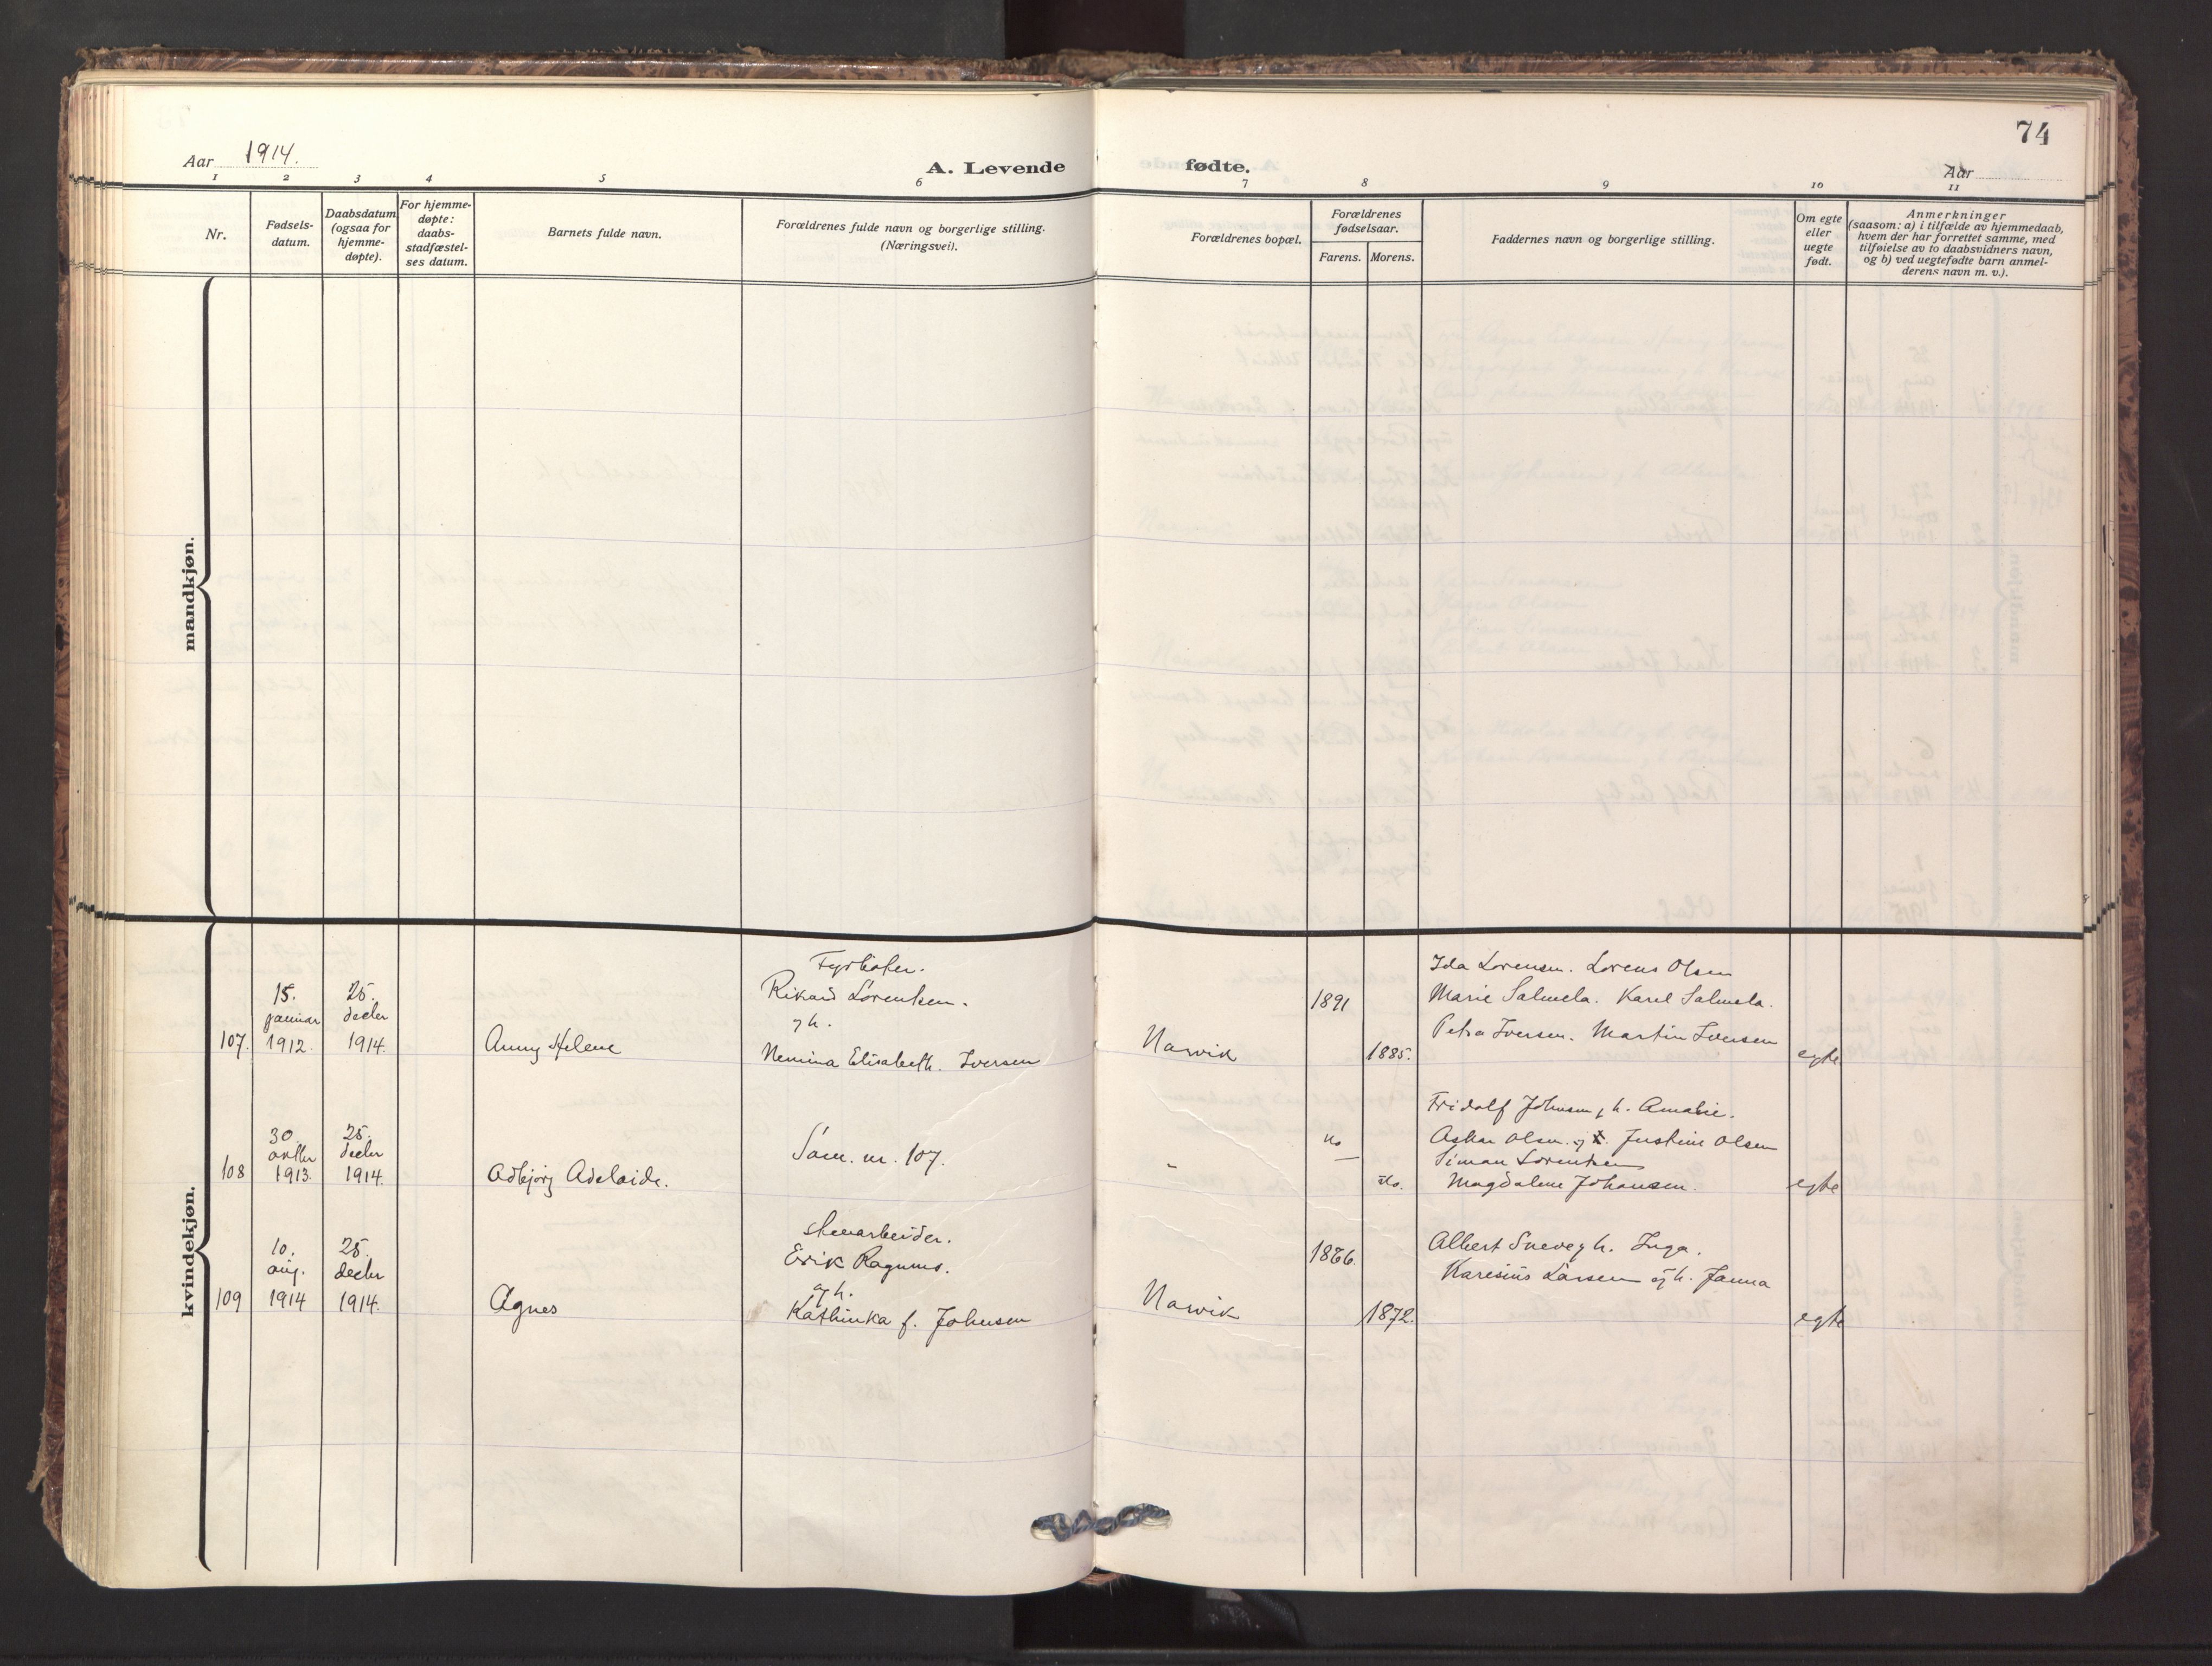 74
Aar 1914.
A. Levende fødte.
Aar
1 2 3 4 5 6 7 8 9 10 11
Nr.
Fødsels-
datum.
Daabsdatum
(ogsaa for
hjemme-
døpte).
For hjemme-
døpte:
daabs-
stadfæstel-
ses datum.
Barnets fulde navn.
Forældrenes fulde navn og borgerlige stilling.
(Næringsvei).
Forældrenes bopæl.
Forældrenes
fødselsaar.
Farens. Morens.
Faddernes navn og borgerlige stilling.
Om egte
eller
uegte
født.
Anmerkninger
(saasom: a) i tilfælde av hjemmedaab,
hvem der har forrettet samme, med
tilføielse av to daabsvidners navn,
og b) ved uegtefødte barn anmel-
derens navn m. v.).
mandkjøn.
kvindekjøn.
107.
15.
januar
1912.
25.
decbr
1914.
Anny Helene
Fyrbøter.
Rikard Lorentsen.
og h.
Nemina Elisabeth. Iversen
Narvik
1891
1885.
Ida Lorensen. Lorens Olsen
Marie Salmela. Karel Salmela.
Petra Iversen. Martin Iversen
egte.
108
30.
oktbr
1913.
25.
decbr
1914.
Adbjørg Adelaide.
Som nr. 107.
"
do
do.
Fridolf Johnsen og h. Amalie.
Askar Olsen og Justine Olsen
Simon Lorentsen
Magdalene Johansen.
egte
109
10.
aug.
1914
25.
decbr
1914.
Agnes
stenarbeider.
Erik Ragnms.
og h.
Kathinka f. Johnsen
Narvik
1866.
1872.
Albert Sneve og h. Inga.
Karesius Larsen og h. Janna
egte